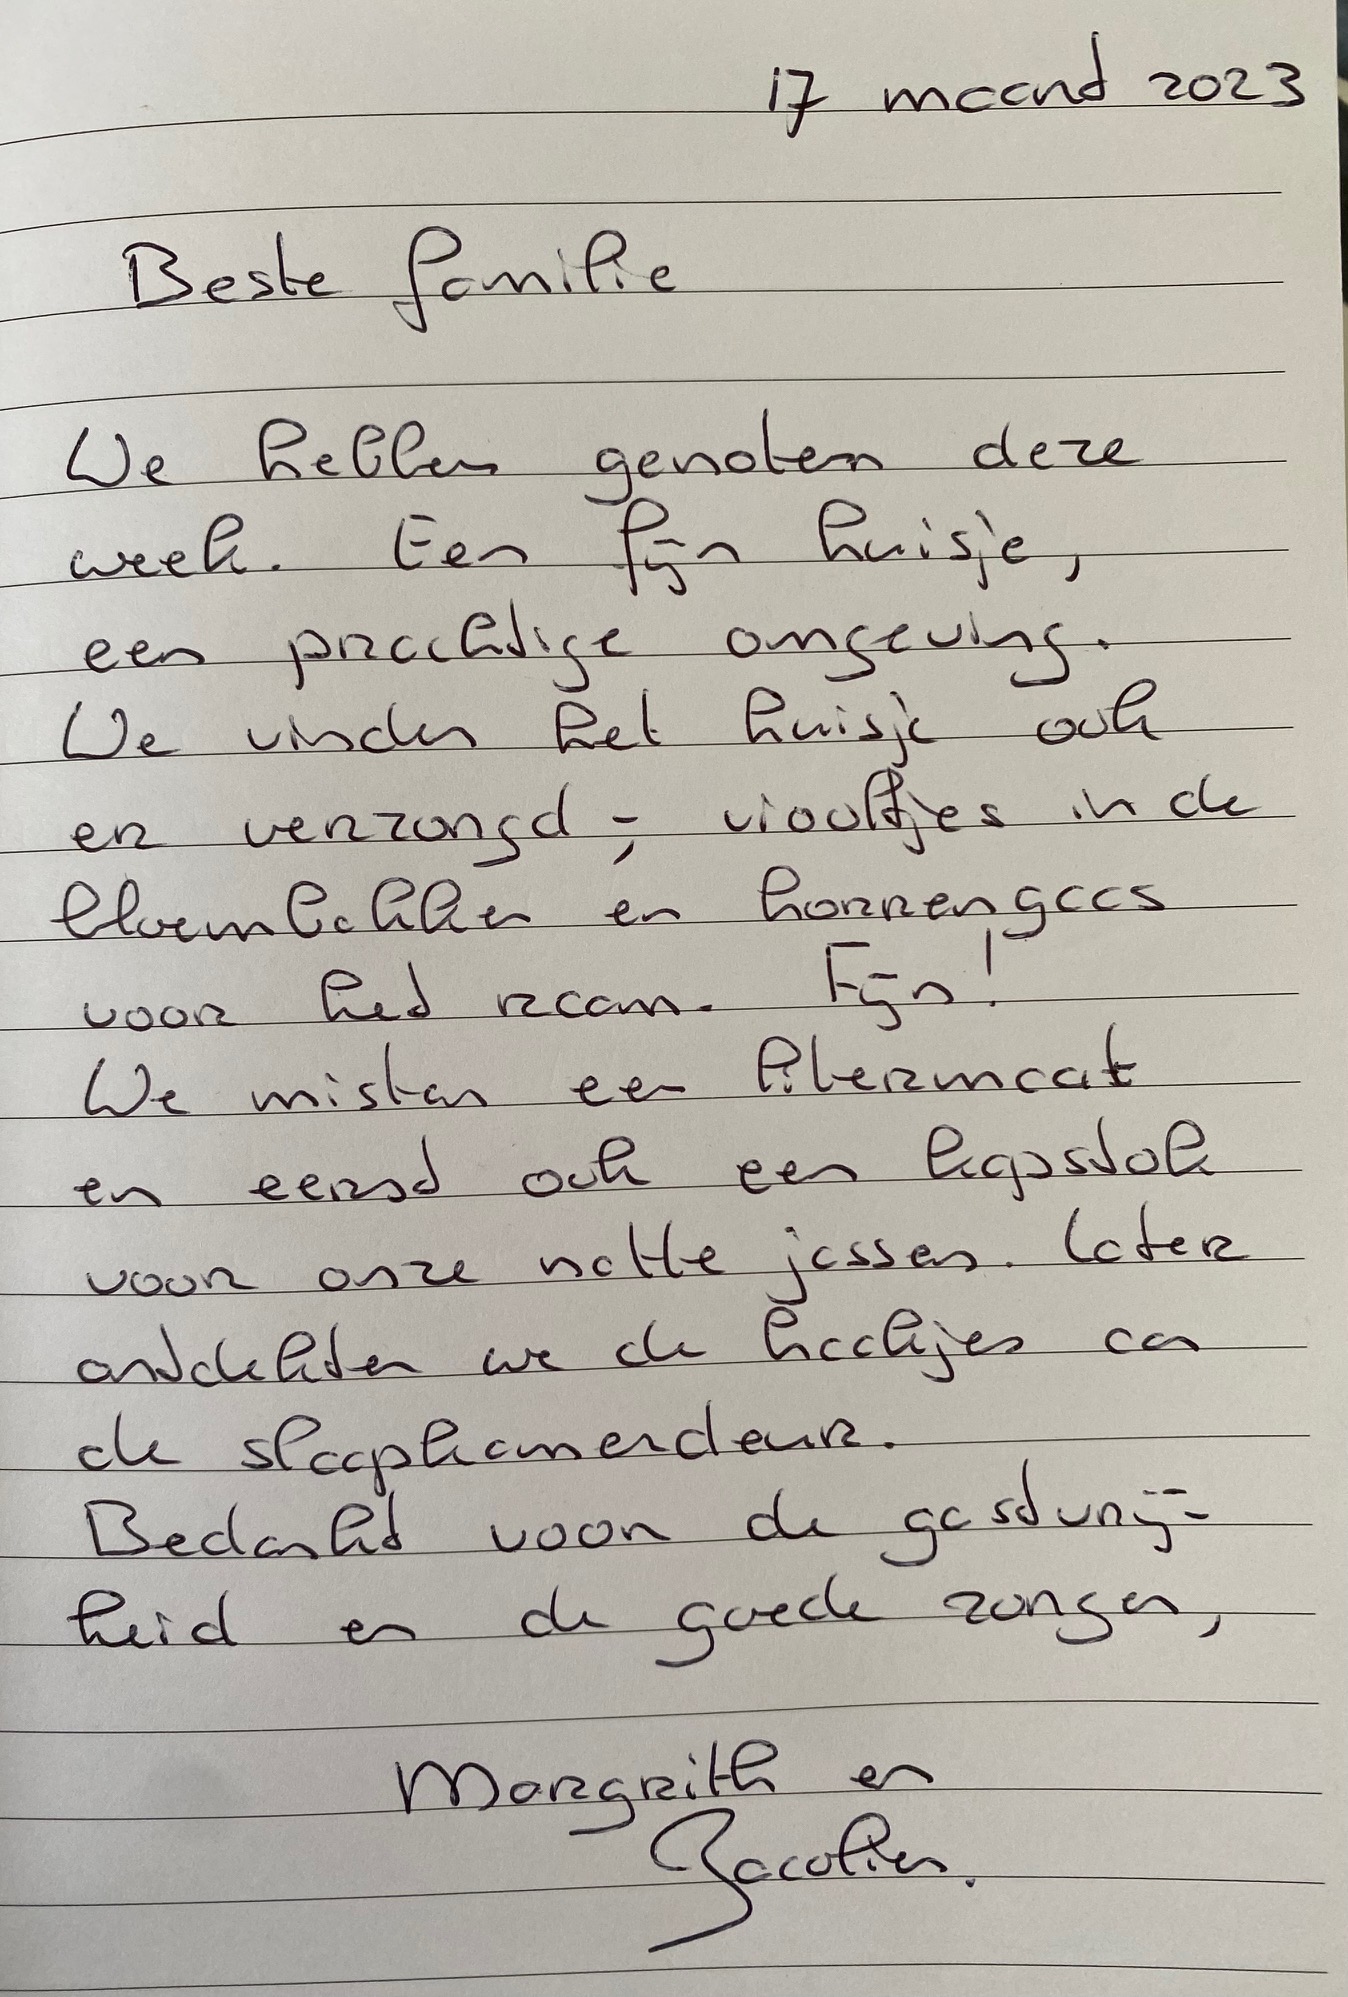 17 maart 2023
Beste familie
We hebben genoten deze
week. Een fijn huisje,
een prachtige omgeving.
We vinden het huisje ook
er verzorgd -, viooltjes in de
bloembakken en horrengaas
voor het raam. Fijn!
We misten een litermaat
en eerst ook een kapstok
voor onze natte jassen. Later
ontdekten we de haakjes aan
de slaapkamerdeur.
Bedankt voor de gastvrij-
heid en de goede zorgen,
Margrith en
Jacolien.